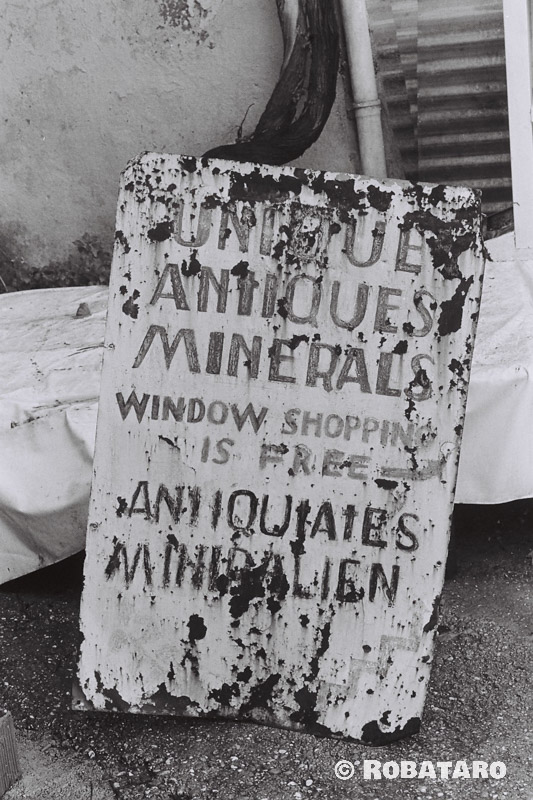 UNIQUE
ANTIQUES
MINERALS
WINDOW SHOPPING
IS FREE
ANTIQUIATES
MINIRALIEN
© ROBATARO